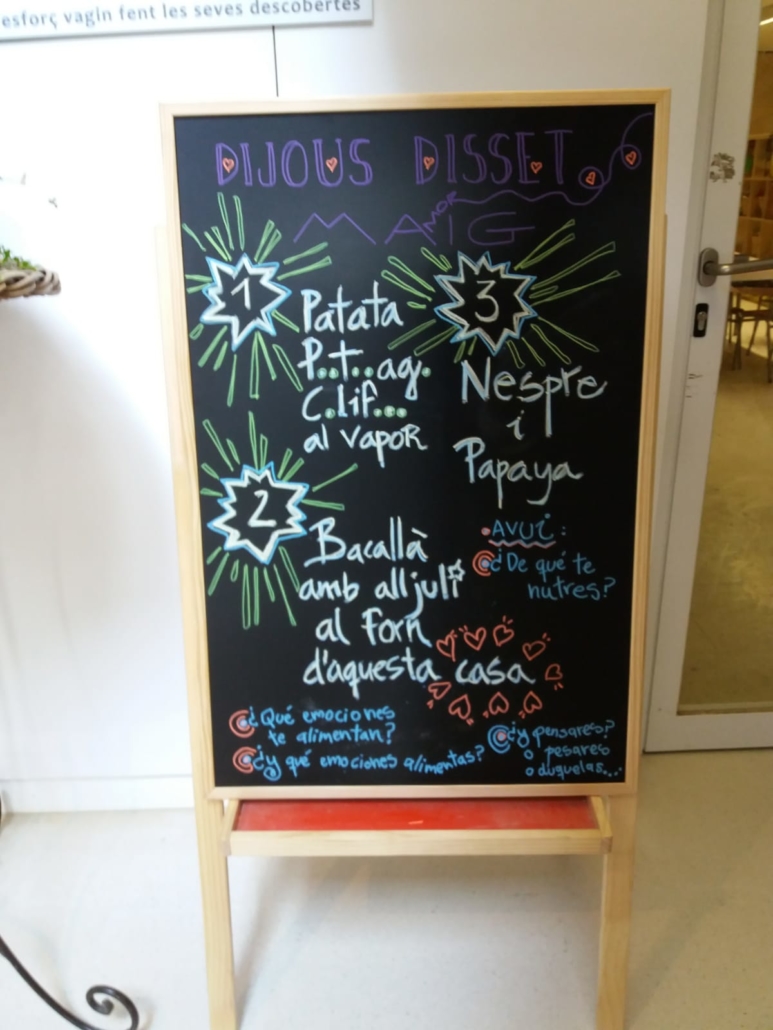 esforç vagin fent les seves descobertes
DIJOUS DISSET
MAIG
AMOR
1
Patata
P..t..ag.
C.lif...
al vapor
2
Bacallà
amb alljuli
al forn
d'aquesta casa
3
Nespre
i
Papaya
AVUI:
¿De qué te
nutres?
¿Qué emociones
te alimentan?
¿y qué emociones alimentas?
¿y pensares?
o pesares
o duquelas...